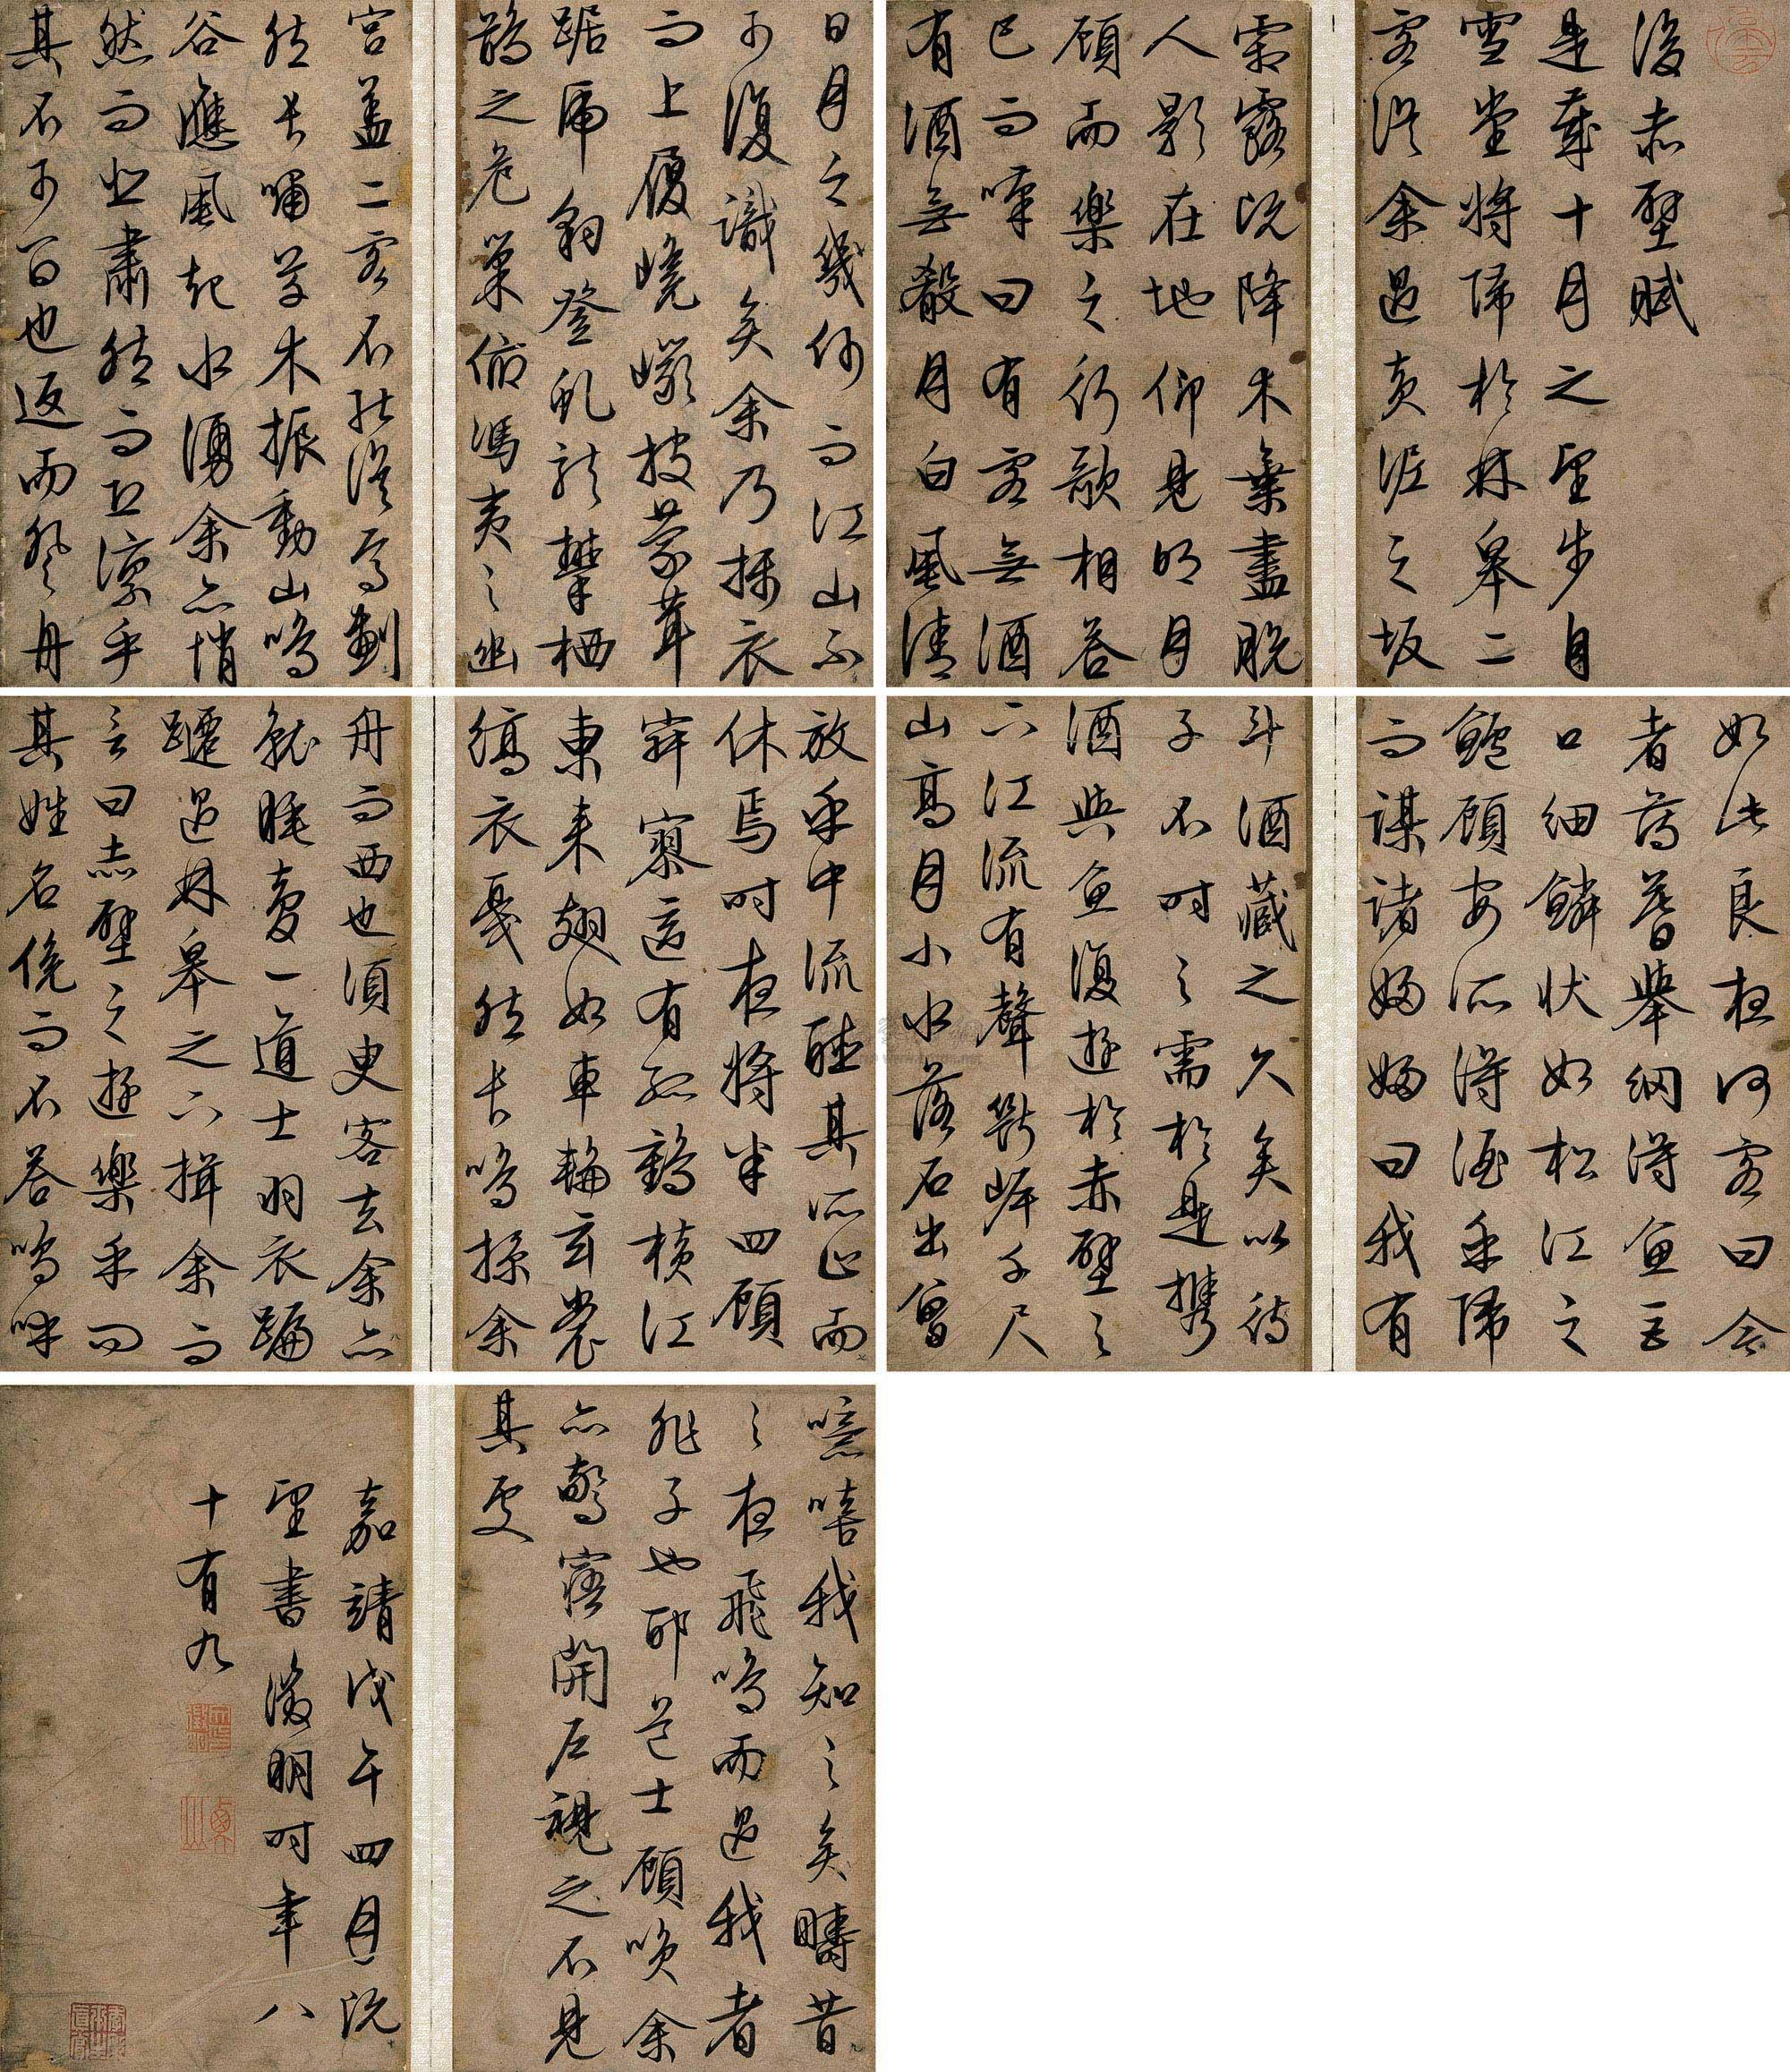 後赤壁賦
是歲十月之望步自
雪堂將歸於林皋二
客從余過黃泥之坂
霜露既降木葉盡脫
人影在地仰見明月
顧而樂之行歌相答
已而嘆曰有客無酒
有酒無殽月白風清
如此良夜何客曰今
者薄暮舉網得魚巨
口細鱗狀如松江之
鱸顧安所得酒乎歸
而謀諸婦婦曰我有
斗酒藏之久矣以待
子不時之需於是攜
酒與魚復遊於赤壁之
下江流有聲斷岸千尺
山高月小水落石出曾
日月之幾何而江山不
可復識矣余乃攝衣
而上履巉巖披蒙茸
踞虎豹登虬龍攀栖
鶻之危巢俯馮夷之幽
宮蓋二客不能從焉劃
然長嘯草木振動山鳴
谷應風起水湧余亦悄
然而悲肅然而恐凜乎
其不可留也返而登舟
放乎中流聽其所止而
休焉時夜將半四顧
寂寥適有孤鶴橫江
東來翅如車輪玄裳
縞衣戛然長鳴掠余
舟而西也須臾客去余亦
就睡夢一道士羽衣蹁
躚過林皋之下揖余而
言曰赤壁之遊樂乎問
其姓名俛而不答嗚呼
噫嘻我知之矣疇昔
之夜飛鳴而過我者
非子也耶道士顧笑余
亦驚寤開戶視之不見
其處
嘉靖戊午四月既
望書徵明時年八
十有九